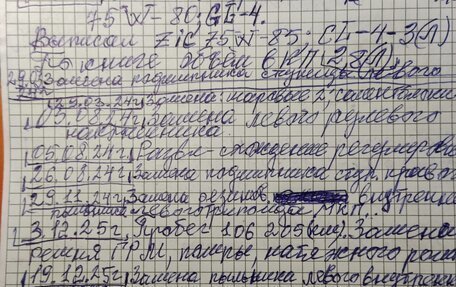 75W-80; GL-4.
Выписал ZIC 75W-85: GL-4-3(Л)
По книге объём в КП (2,2Л).
Замена подшипника ступицы левого
(29.03.24г) Замена: шаровые 2, сайлентблоки
05.08.24г Замена левого рулевого
наконечника.
05.08.24г. Развал-схождение регулировка
26.08.24г. Замена подшипника ступ. правого
29.11.24г. Замена резинов. внутренне
пыльника левого трипоида МКП.
3.12.25г. Пробег 106 205 (км). Замена
ремня ГРМ, помпы, натяжного роли
19.12.25г. Замена пыльника левого внутренн